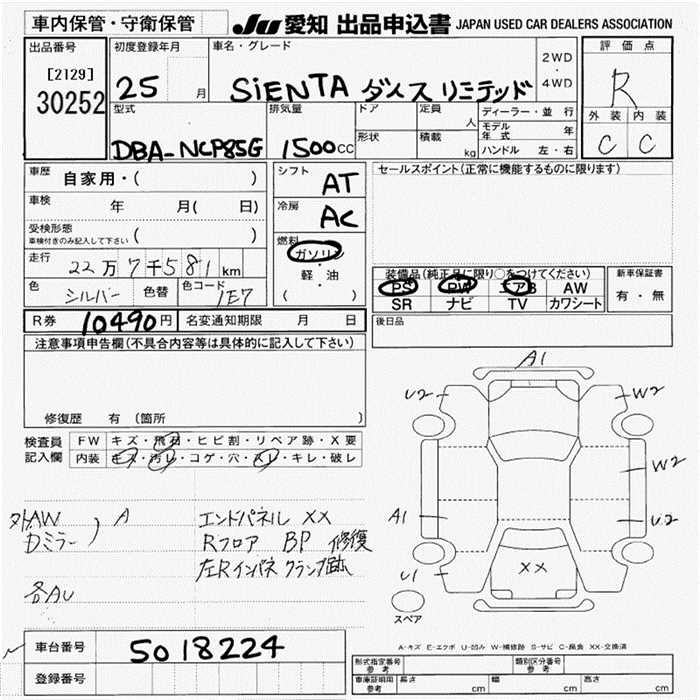 車内保管・守衛保管 JU 愛知 出品申込書 JAPAN USED CAR DEALERS ASSOCIATION
出品番号 初度登録年月 車名・グレード 評価点
[2129] 2WD
30252 25 月 SiENTA ダイス リミテッド 4WD R
型式 排気量 ドア 定員 人 ディーラー・並行 外装 内装
モデル年式 年
DBA-NCP85G 1500cc 形状 積載 kg ハンドル 左・右 C C
車歴 自家用・( ) シフト AT セールスポイント(正常に機能するものに限ります)
車検 年 月( 日) 冷房 AC
受検形態
車検付きのみ記入して下さい ( ) 燃料
走行 22万7千581km ガソリン
・
軽・油 装備品(純正品に限り○をつけてください) 新車保証書
色 シルバー 色替 色コード 1E7 ( ) PS PW エアB AW 有・無
SR ナビ TV カワシート
R券 10490円 名変通知期限 月 日 後日品
注意事項申告欄(不具合内容等は具体的に記入して下さい)
A1
U2 W2
修復歴 有 (箇所 )
検査員 FW キズ・飛石・ヒビ割・リペア跡・X要
記入欄 内装 キズ・汚レ・コゲ・穴・スレ・キレ・破レ
W2
A1 U2
外AW ) A エンドパネル XX
Dミラー Rフロア BP 修復
左Rインパネ クランプ跡
XX
U1
各AU
スペア
車台番号 5018224
A-キズ E-エクボ U-凹み W-補修跡 S-サビ C-腐食 XX-交換済
登録番号
形式指定番号 参考 類別区分番号 参考
車庫証明用 参考 長さ cm 幅 cm 高さ cm